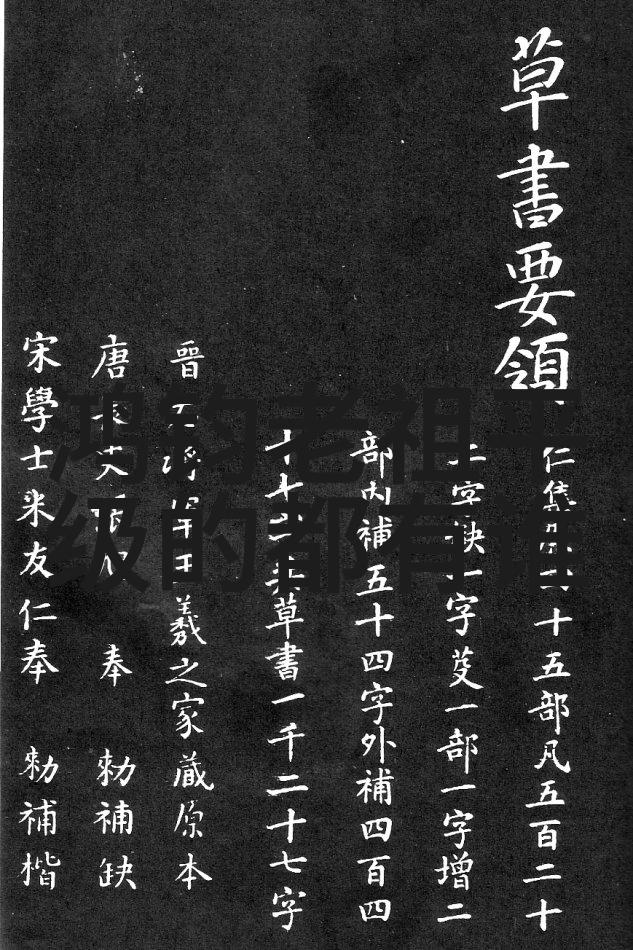 草書要領
仁集 十五部凡五百二十
二字缺一字芟一部一字增二
部内補五十四字外補四百四
十 共草書一千二十七字
晉右將軍王羲之家藏原本
唐長史 奉 勑補缺
宋學士米友仁奉 勑補楷
鸿钧老祖平
级的都有谁